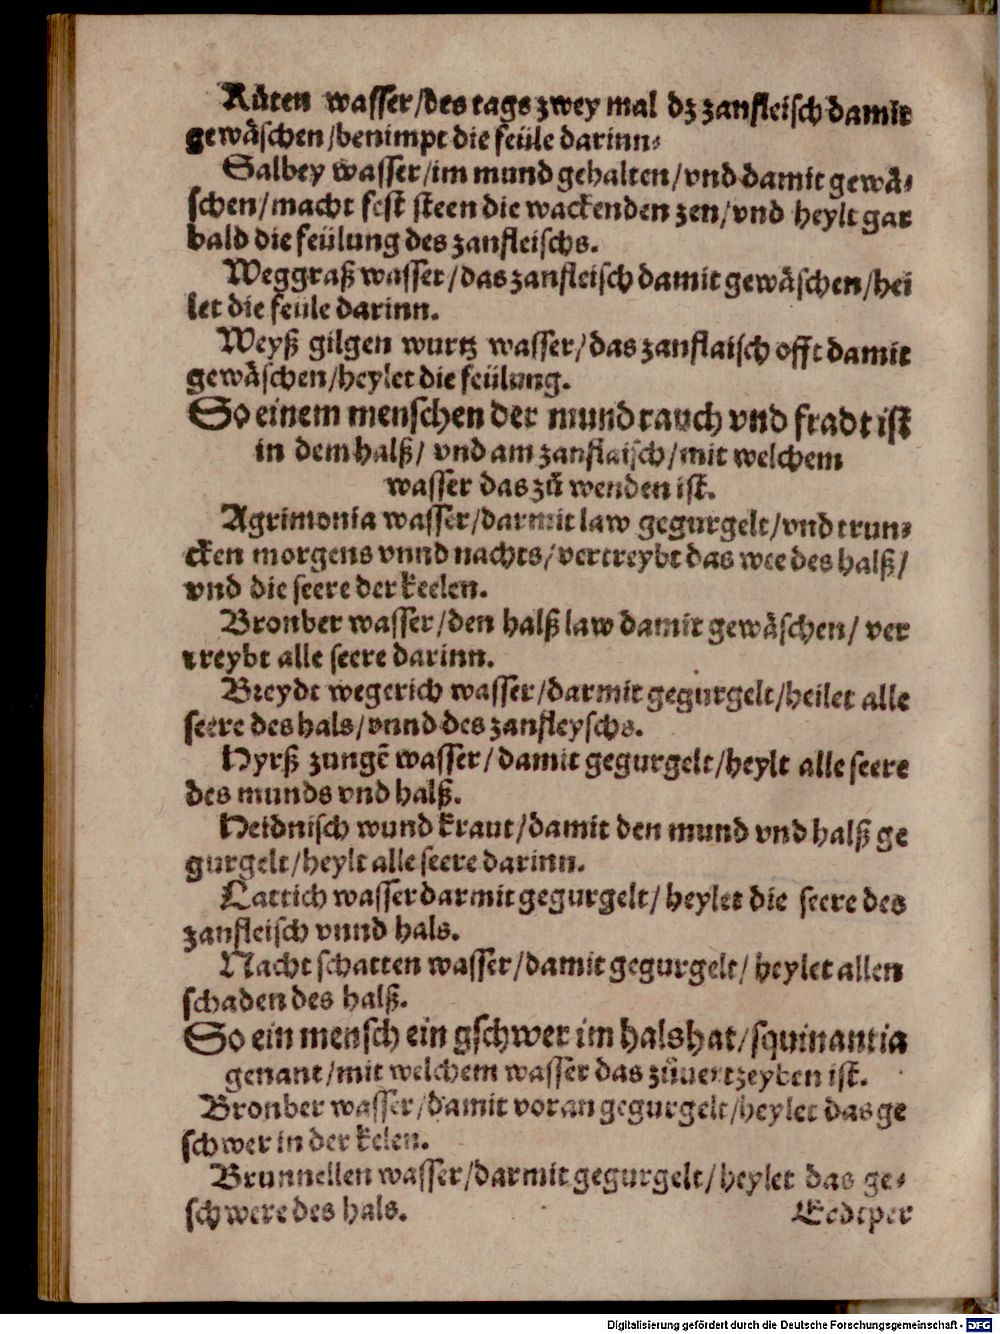 Růten wasser/des tags zwey mal dz zanfleisch damit
gewåschen/benimpt die feüle darinn.
Salbey wasser/im mund gehalten/vnd damit gewå-
schen/macht fest steen die wackenden zen/vnd heylt gar
bald die feülung des zanfleischs.
Weggraß wasser/das zanfleisch damit gewåschen/hei
let die feüle darinn.
Weyß gilgen wurtz wasser/das zanflaisch offt damit
gewåschen/heylet die feülung.
So einem menschen der mund rauch vnd fradt ist
in dem halß/ vnd am zanflaisch/mit welchem
wasser das zů wenden ist.
Agrimonia wasser/darmit law gegurgelt/vnd trun-
cken morgens vnnd nachts/vertreybt das wee des halß/
vnd die seere der keelen.
Bronber wasser/den halß law damit gewåschen/ ver
treybt alle seere darinn.
Breydt wegerich wasser/darmit gegurgelt/heilet alle
seere des hals/vnnd des zanfleyschs.
Hyrß zungẽ wasser/damit gegurgelt/heylt alle seere
des munds vnd halß.
Heidnisch wund kraut/damit den mund vnd halß ge
gurgelt/heylt alle seere darinn.
Lattich wasser darmit gegurgelt/ heylet die seere des
zanfleisch vnnd hals.
Nacht schatten wasser/damit gegurgelt/ heylet allen
schaden des halß.
So ein mensch ein gschwer im hals hat/squinantia
genant/mit welchem wasser das zůuertzeyben ist.
Bronber wasser/damit voran gegurgelt/heylet das ge
schwer in der kelen.
Brunnellen wasser/darmit gegurgelt/heylet das ge-
schwere des hals.
Erdtper
Digitalisierung gefördert durch die Deutsche Forschungsgemeinschaft - DFG